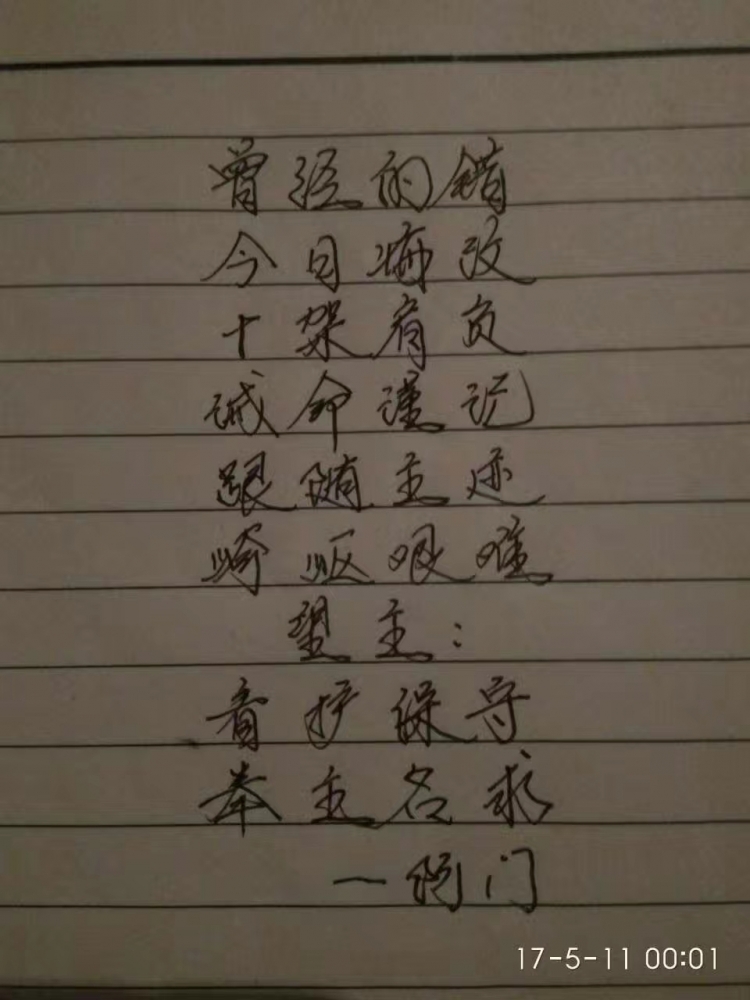 曾经的错
今日悔改
十架肩负
诫命谨记
跟随主迹
崎岖艰难
望主:
看护保守
奉主名求
一阿门
17-5-11 00:01